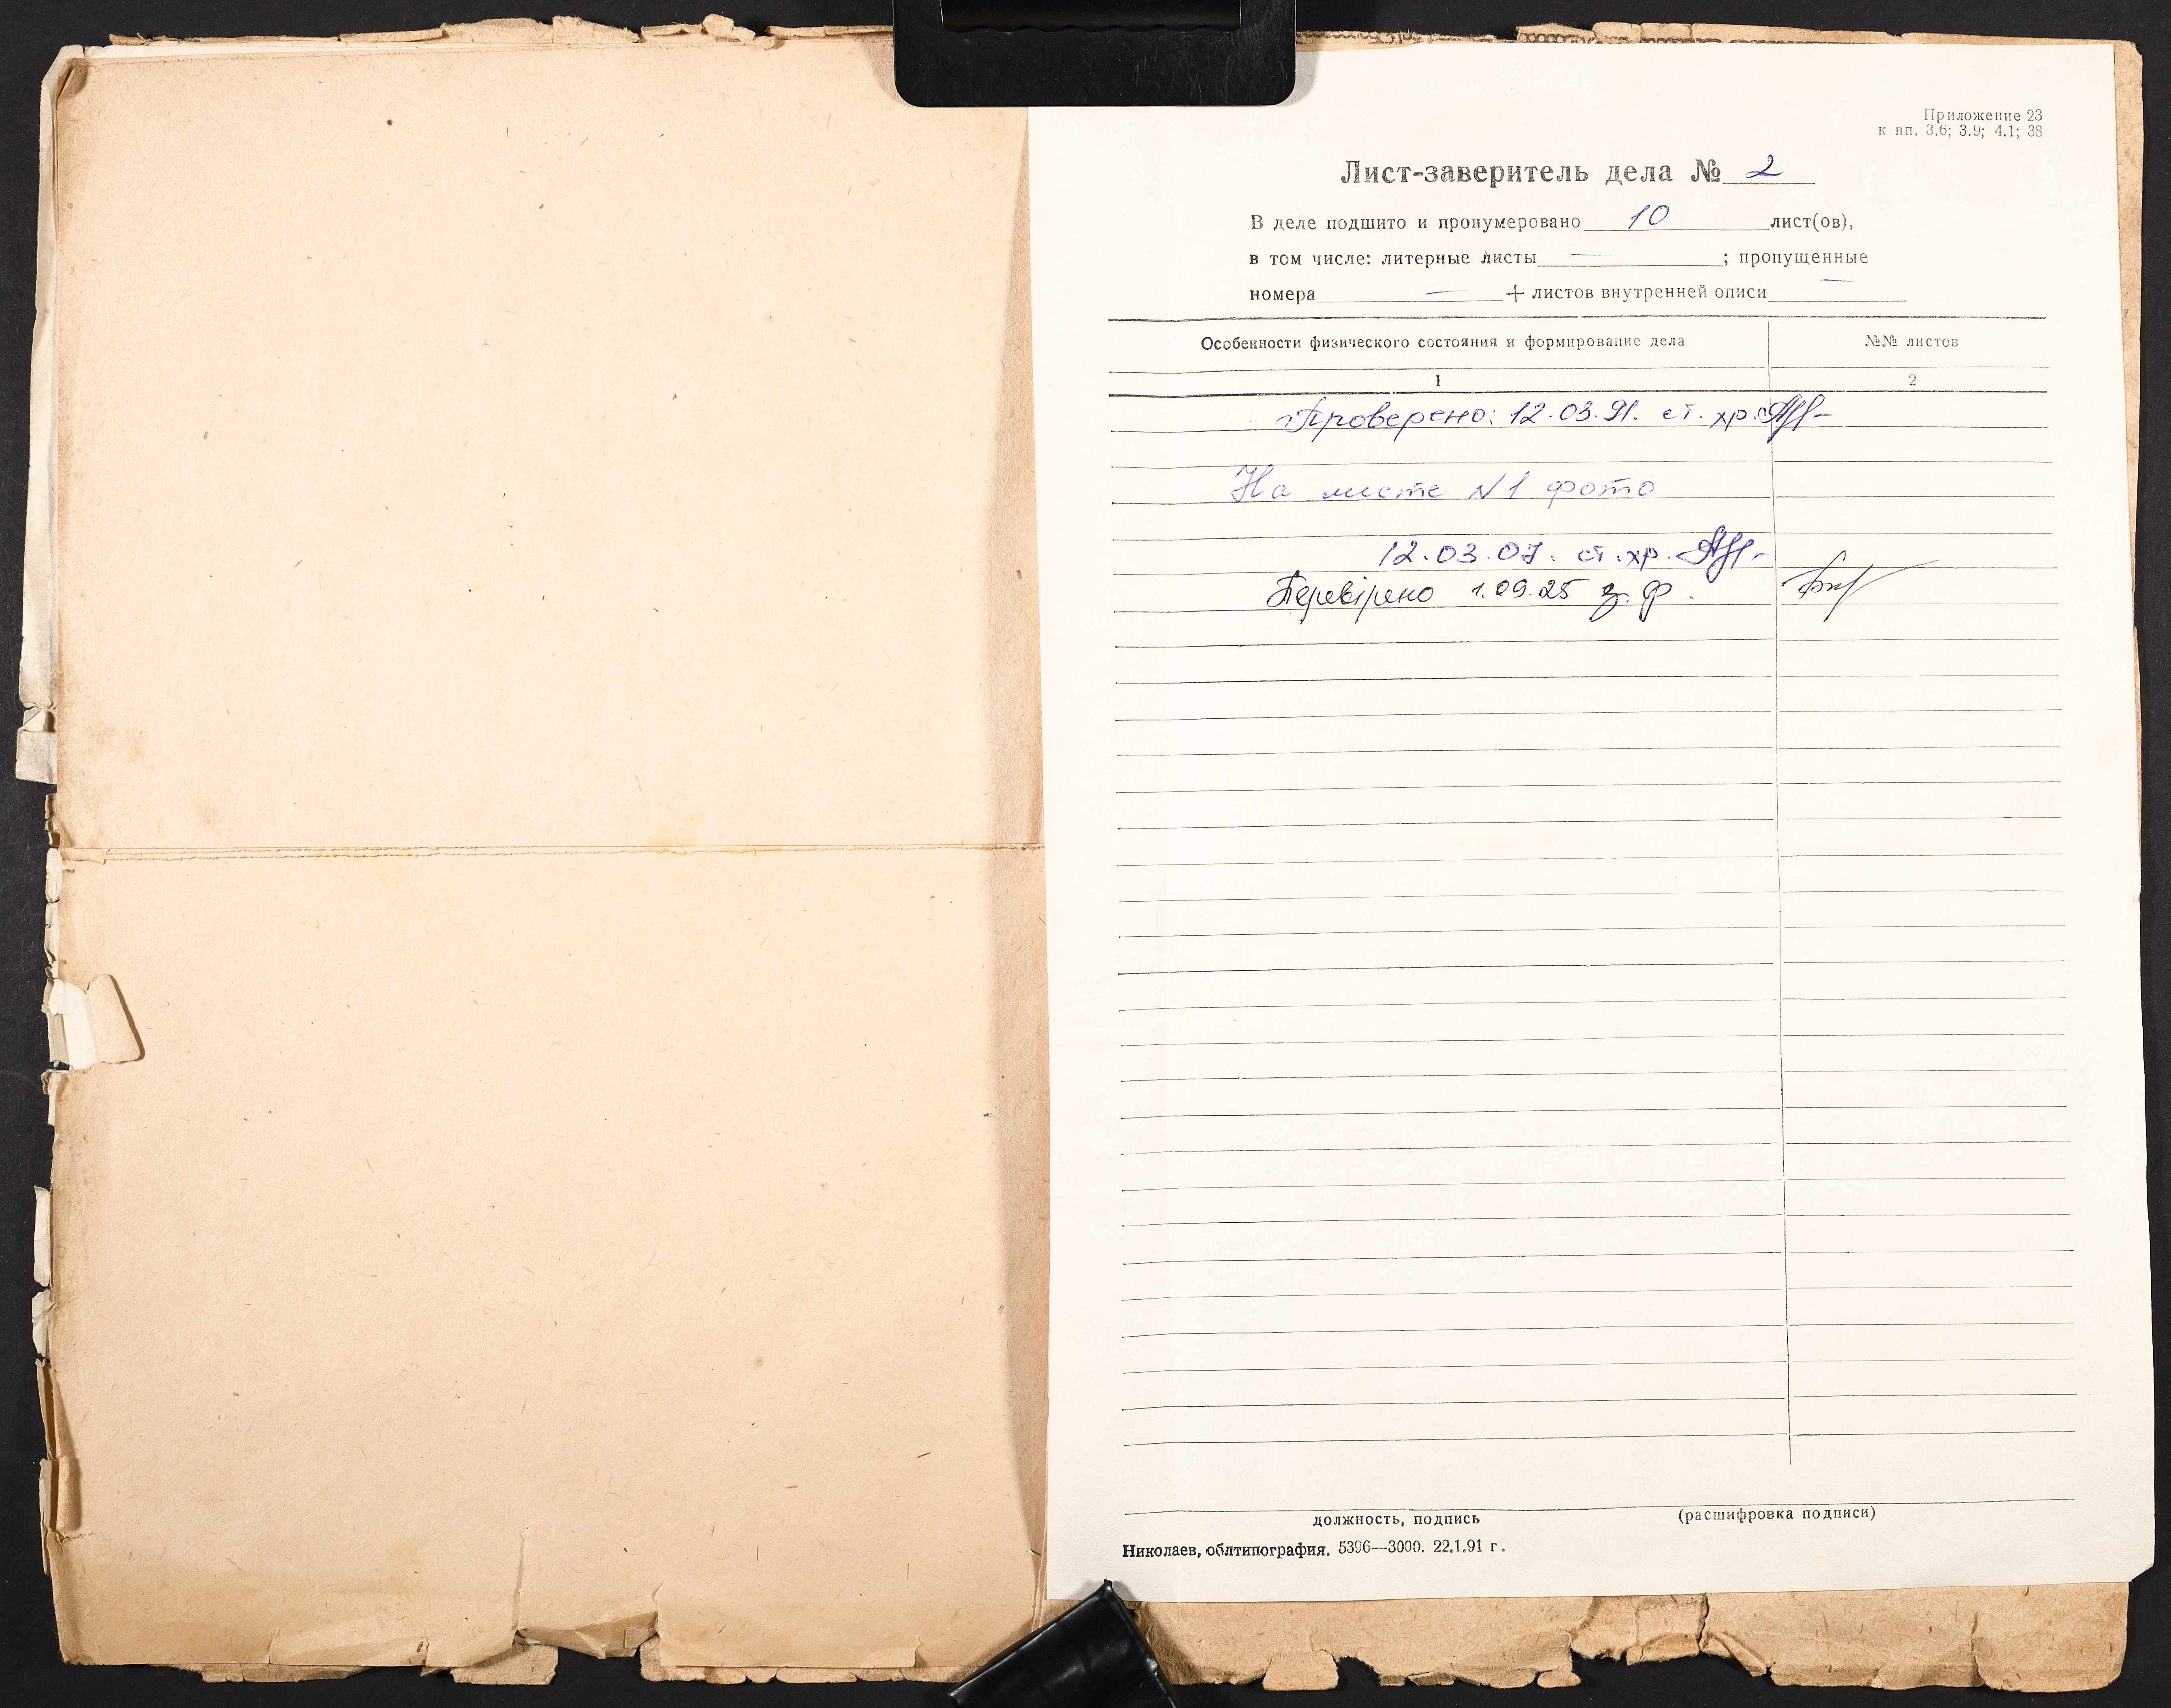 Приложение 23
к пп. 3.6; 3.9; 4.1; 38
Лист-заверитель дела № 2
В деле подшито и пронумеровано 10 лист(ов),
в том числе: литерные листы — ; пропущенные
номера — + листов внутренней описи —
Особенности физического состояния и формирование дела №№ листов
1 2
Проверено: 12.03.91. ст. хр.
На листе N1 фото
12.03.07. ст. хр.
Перевірено 1.09.25 з. ф.
должность, подпись (расшифровка подписи)
Николаев, облтипография. 5396—3000. 22.1.91 г.